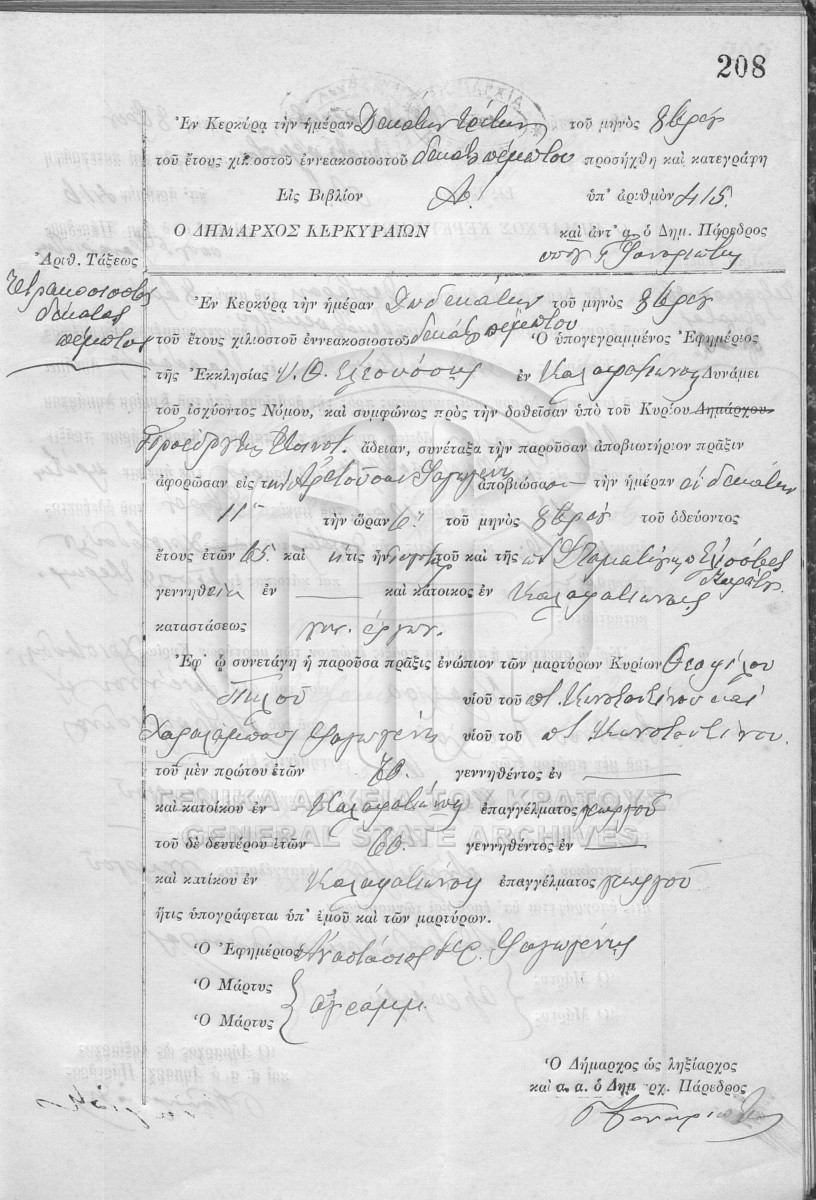 208
Ἐν Κερκύρᾳ τὴν ἡμέραν Δεκάτην τρίτην τοῦ μηνὸς 8βρίου
τοῦ ἔτους χιλιοστοῦ ἐννεακοσιοστοῦ δεκάτου πέμπτου προσήχθη καὶ κατεγράφη
Εἰς Βιβλίον Α. ὑπ' ἀριθμὸν 415.
Ο ΔΗΜΑΡΧΟΣ ΚΕΡΚΥΡΑΙΩΝ καὶ ἀντ' α. ὁ Δημ. Πάρεδρος
Ἀριθ. Τάξεως
Τετρακοσιοστὸς
δέκατος
πέμπτος
Ἐν Κερκύρᾳ τὴν ἡμέραν Δωδεκάτην τοῦ μηνὸς 8βρίου
τοῦ ἔτους χιλιοστοῦ ἐννεακοσιοστοῦ δεκάτου πέμπτου Ὁ ὑπογεγραμμένος Ἐφημέριος
τῆς Ἐκκλησίας Υ. Θ. Ἐλεούσης ἐν Καλαφατιώναις Δυνάμει
τοῦ ἰσχύοντος Νόμου, καὶ συμφώνως πρὸς τὴν δοθεῖσαν ὑπὸ τοῦ Κυρίου Δημάρχου
Προέδρου τῆς Κοινότ. ἄδειαν, συνέταξα τὴν παροῦσαν ἀποβιωτήριον πρᾶξιν
ἀφορῶσαν εἰς τὴν Ἀρετοῦσαν ἀποβιώσασαν τὴν ἡμέραν
11 τὴν ὥραν 6 τοῦ μηνὸς 8βρίου τοῦ ὁδεύοντος
ἔτους ἐτῶν 65 καὶ ἥτις ἦν θυγάτηρ τοῦ καὶ τῆς
γεννηθεῖσα ἐν καὶ κάτοικος ἐν Καλαφατιώναις
καταστάσεως
Ἐφ' ᾧ συνετάγη ἡ παροῦσα πρᾶξις ἐνώπιον τῶν μαρτύρων Κυρίων Θεοφίλου
υἱοῦ τοῦ π. Κωνσταντίνου καὶ
Χαραλάμπους υἱοῦ τοῦ π. Κωνσταντίνου.
τοῦ μὲν πρώτου ἐτῶν γεννηθέντος ἐν
καὶ κατοίκου ἐν Καλαφατιώναις ἐπαγγέλματος γεωργοῦ
τοῦ δὲ δευτέρου ἐτῶν 60. γεννηθέντος ἐν
καὶ κατίκου ἐν Καλαφατιώναις ἐπαγγέλματος γεωργοῦ
ἥτις ὑπογράφεται ὑπ' ἐμοῦ καὶ τῶν μαρτύρων.
Ὁ Ἐφημέριος Ἀναστάσιος
Ὁ Μάρτυς
ἀγράμμ.
Ὁ Μάρτυς
Ὁ Δήμαρχος ὡς ληξίαρχος
καὶ α. α. ὁ Δημαρχ. Πάρεδρος
ΓΕΝΙΚΑ ΑΡΧΕΙΑ ΤΟΥ ΚΡΑΤΟΥΣ
GENERAL STATE ARCHIVES